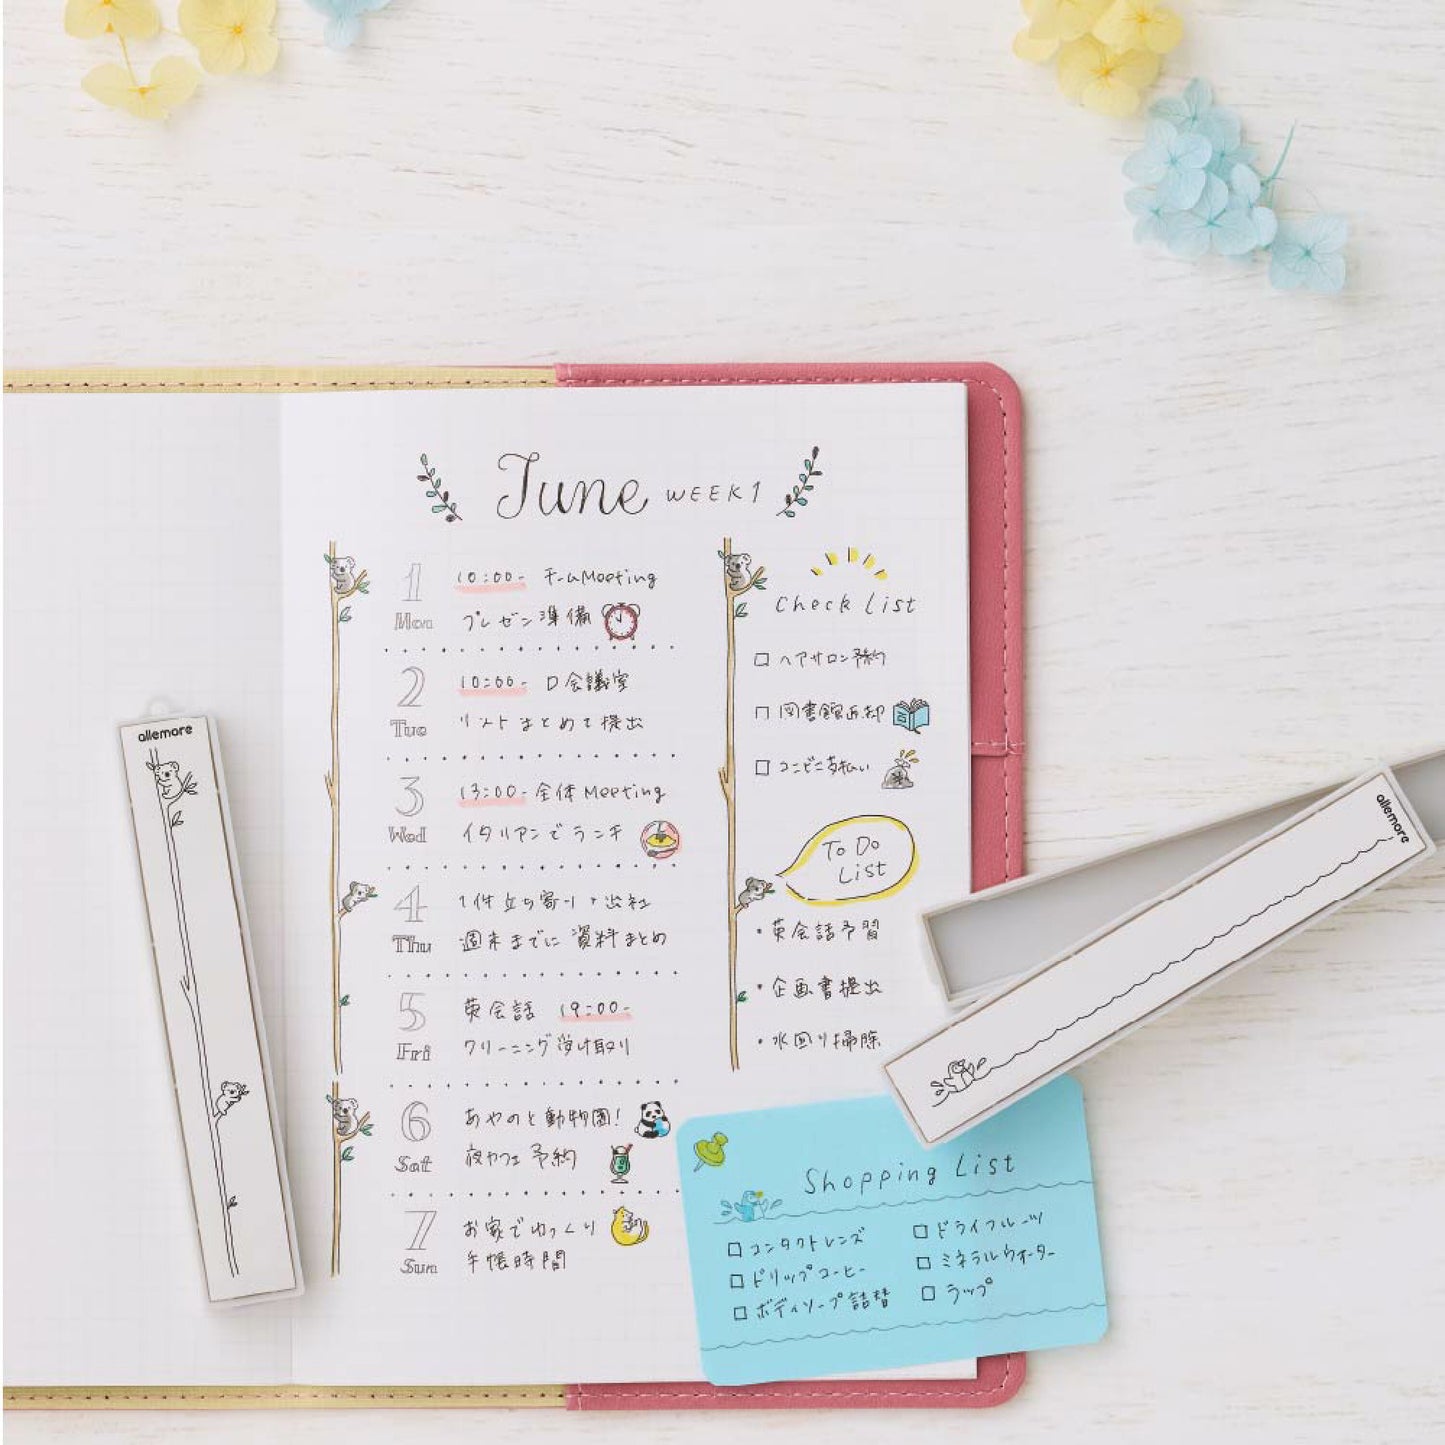 June WEEK1
1 Mon
10:00- チームMeeting
プレゼン準備
2 Tue
10:00- D会議室
リストまとめて提出
3 Wed
13:00- 全体Meeting
イタリアンでランチ
4 Thu
1件立ち寄り、出社
週末までに資料まとめ
5 Fri
英会話 19:00-
クリーニング受け取り
6 Sat
あやのと動物園!
夜カフェ予約
7 Sun
お家でゆっくり
手帳時間
Check List
ヘアサロン予約
図書館返却
コンビニ支払い
To Do
List
・英会話予習
・企画書提出
・水回り掃除
Shopping List
コンタクトレンズ
ドリップコーヒー
ボディソープ詰替
ドライフルーツ
ミネラルウォーター
ラップ
allemore
allemore